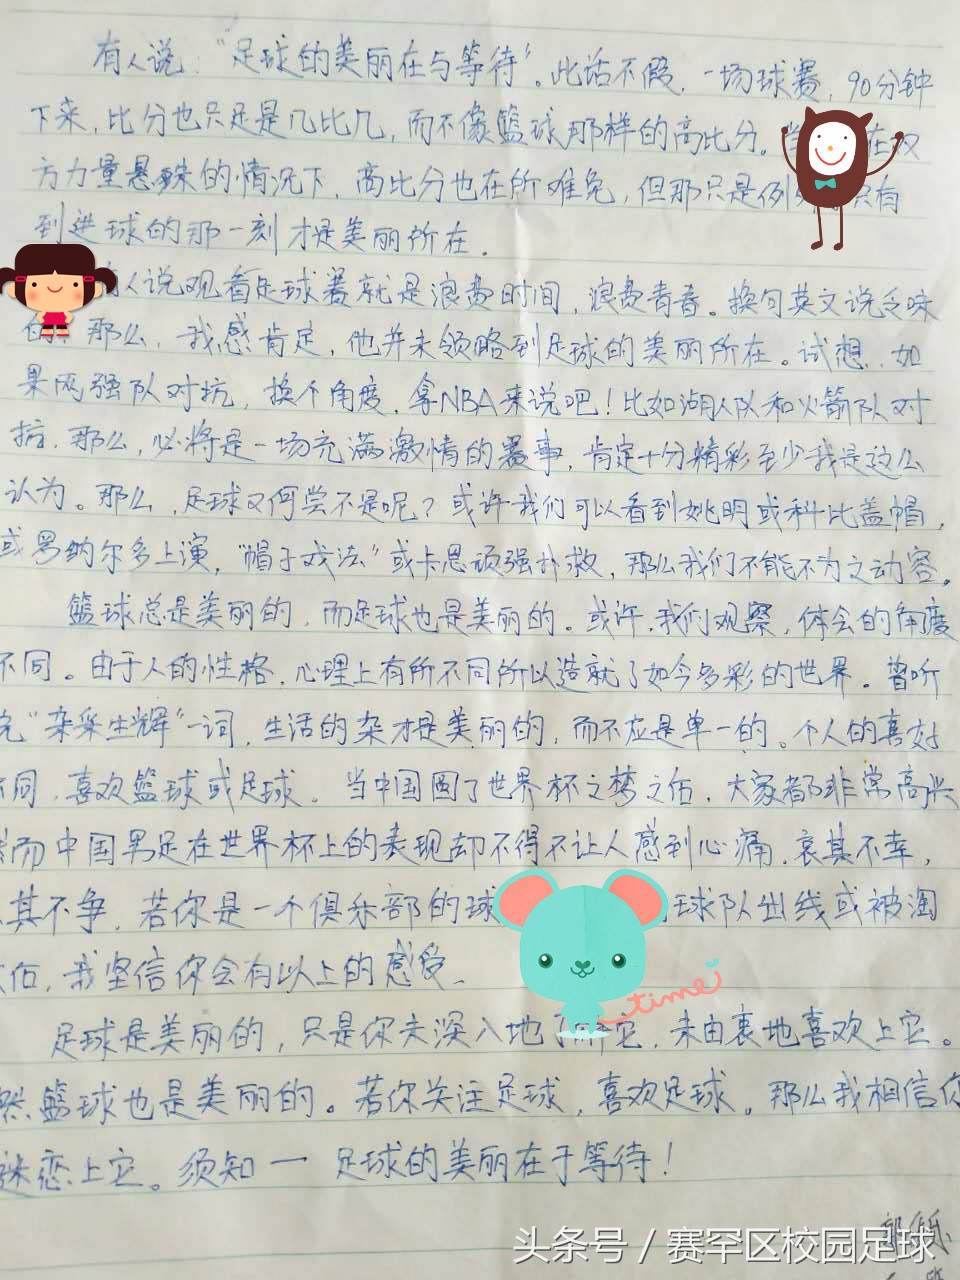 有人说：“足球的美丽在与等待”。此话不假，一场球赛，90分钟
下来，比分也只是是几比几，而不像篮球那样的高比分。当 在双
方力量悬殊的情况下，高比分也在所难免，但那只是例 只有
到进球的那一刻才是美丽所在。
人说观看足球赛就是浪费时间，浪费青春。换句英文说乏味
的。那么，我感肯定，他并未领略到足球的美丽所在。试想，如
果两强队对抗，换个角度，拿NBA来说吧！比如湖人队和火箭队对
抗，那么，必将是一场充满激情的赛事，肯定十分精彩至少我是这么
认为。那么，足球又何尝不是呢？或许我们可以看到姚明或科比盖帽，
或罗纳尔多上演，“帽子戏法”或卡恩顽强扑救，那么我们不能不为之动容。
篮球总是美丽的，而足球也是美丽的。或许，我们观察，体会的角度
不同。由于人的性格，心理上有所不同所以造就了如今多彩的世界。曾听
说“杂柴生辉”一词，生活的杂才是美丽的，而不应是单一的。个人的喜好
不同，喜欢篮球或足球。当中国圆了世界杯之梦之后，大家都非常高兴
然而中国男足在世界杯上的表现却不得不让人感到心痛，哀其不幸，
其不争，若你是一个俱乐部的球 球队出线或被淘
汰后，我坚信你会有以上的感受。
time
足球是美丽的，只是你未深入地了解它，未由衷地喜欢上它。
然篮球也是美丽的。若你关注足球，喜欢足球。那么我相信你
迷恋上它。须知一 足球的美丽在于等待！
头条号 / 赛罕区校园足球